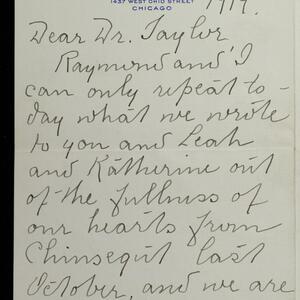 1437 WEST OHIO STREET
CHICAGO
1919.
Dear Dr. Taylor
Raymond and I
can only repeat to-
day what we wrote
to you and Leah
and Katherine out
of the fullness of
our hearts from
Chinsegut last
October, and we are